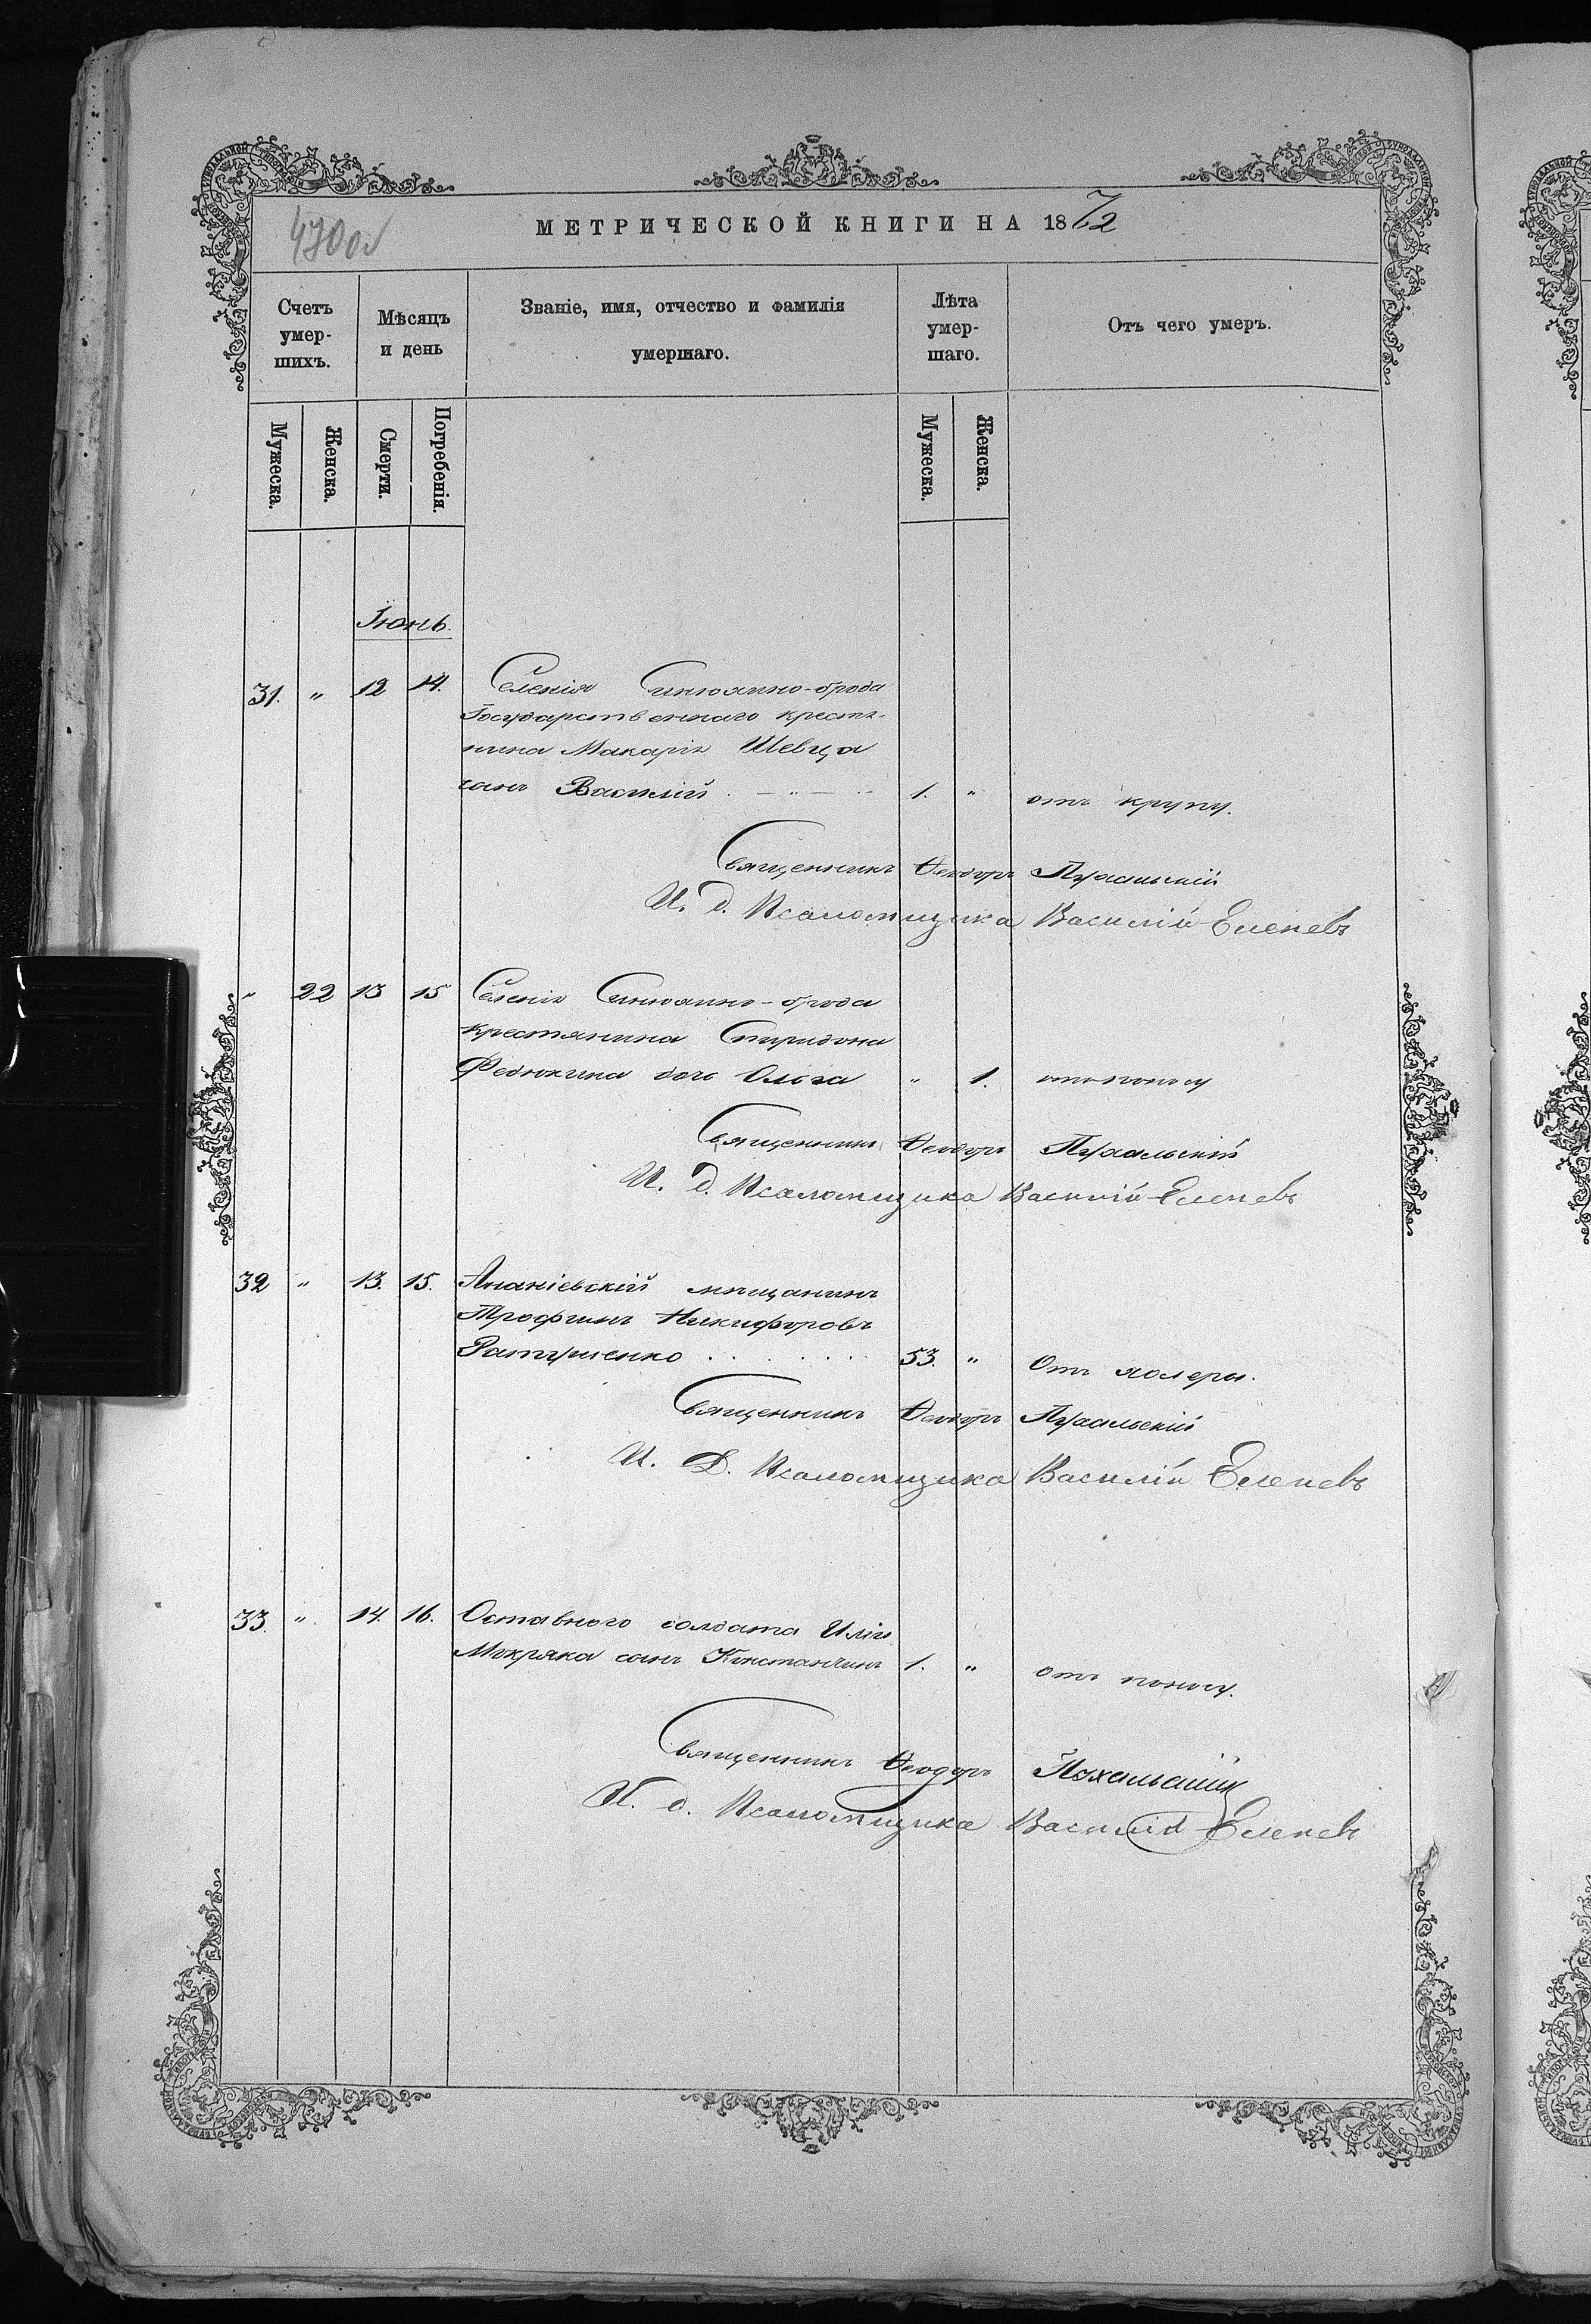 470об
МЕТРИЧЕСКОЙ КНИГИ НА 1872
Счетъ умер-шихъ.
Мѣсяцъ и день
Званіе, имя, отчество и фамилія умершаго.
Лѣта умер-шаго.
Отъ чего умеръ.
Мужеска.
Женска.
Смерти.
Погребенія.
Мужеска.
Женска.
Іюнь.
31. " 12 14. Селенія Синюхино-брода
Государственнаго крестя-
нина Макарія Шевца
сынъ Василій 1. " отъ крупу.
Священникъ Ѳеодоръ Пухальскій
И. д. Псаломщика Василій Еленевъ
" 22 13 15 Селенія Синюхино-брода
крестянина Спиридона
Федюкина дочь Ольга " 1. отъ поносу
Священникъ Ѳеодоръ Пухальскій
И. д. Псаломщика Василій Еленевъ
32 " 13. 15. Ананіевскій мѣщанинъ
Трофимъ Никифоровъ
Ратушенко . . . . . . . 53. " Отъ холеры.
Священникъ Ѳеодоръ Пухальскій
И. Д. Псаломщика Василій Еленевъ
33. " 14. 16. Оставного солдата Иліи
Мокряка сынъ Константинъ 1. " отъ поносу.
Священникъ Ѳеодоръ Пухальскій
И. д. Псаломщика Василій Еленевъ